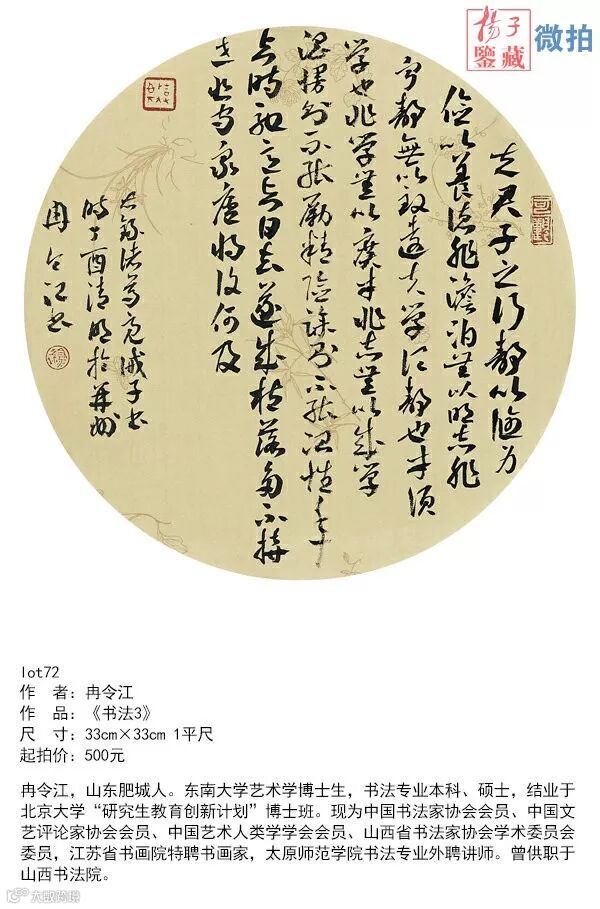 杨子
鑒藏
微拍
夫君子之行靜以脩身
儉以養德非澹泊無以明志非
寧靜無以致遠夫學須靜也才須
學也非學無以廣才非志無以成學
淫慢則不能勵精險躁則不能冶性年
與時馳意與日去遂成枯落多不接
世悲守窮廬將復何及
右錄諸葛亮誡子書
時丁酉清明於并州
冉令江書
lot72
作 者：冉令江
作 品：《书法3》
尺 寸：33cm×33cm 1平尺
起拍价：500元
冉令江，山东肥城人。东南大学艺术学博士生，书法专业本科、硕士，结业于
北京大学“研究生教育创新计划”博士班。现为中国书法家协会会员、中国文
艺评论家协会会员、中国艺术人类学学会会员、山西省书法家协会学术委员会
委员，江苏省书画院特聘书画家，太原师范学院书法专业外聘讲师。曾供职于
山西书法院。